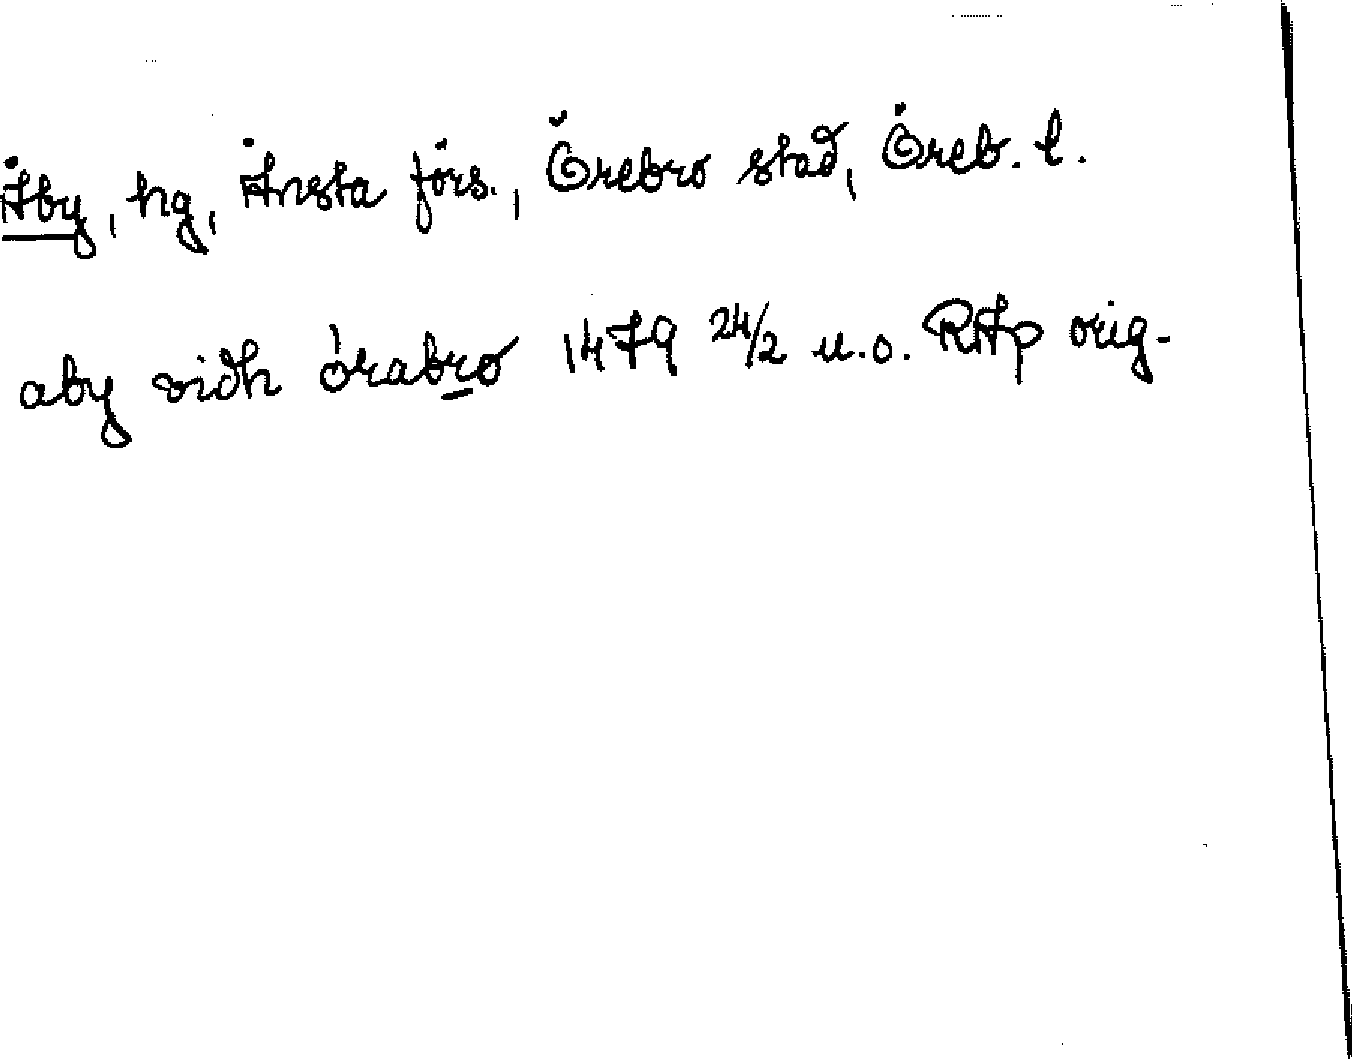 Åby, hg, Ånsta förs., Örebro stad, Öreb. l.
aby vidh örabro 1479 24/2 u.o. RAp orig.